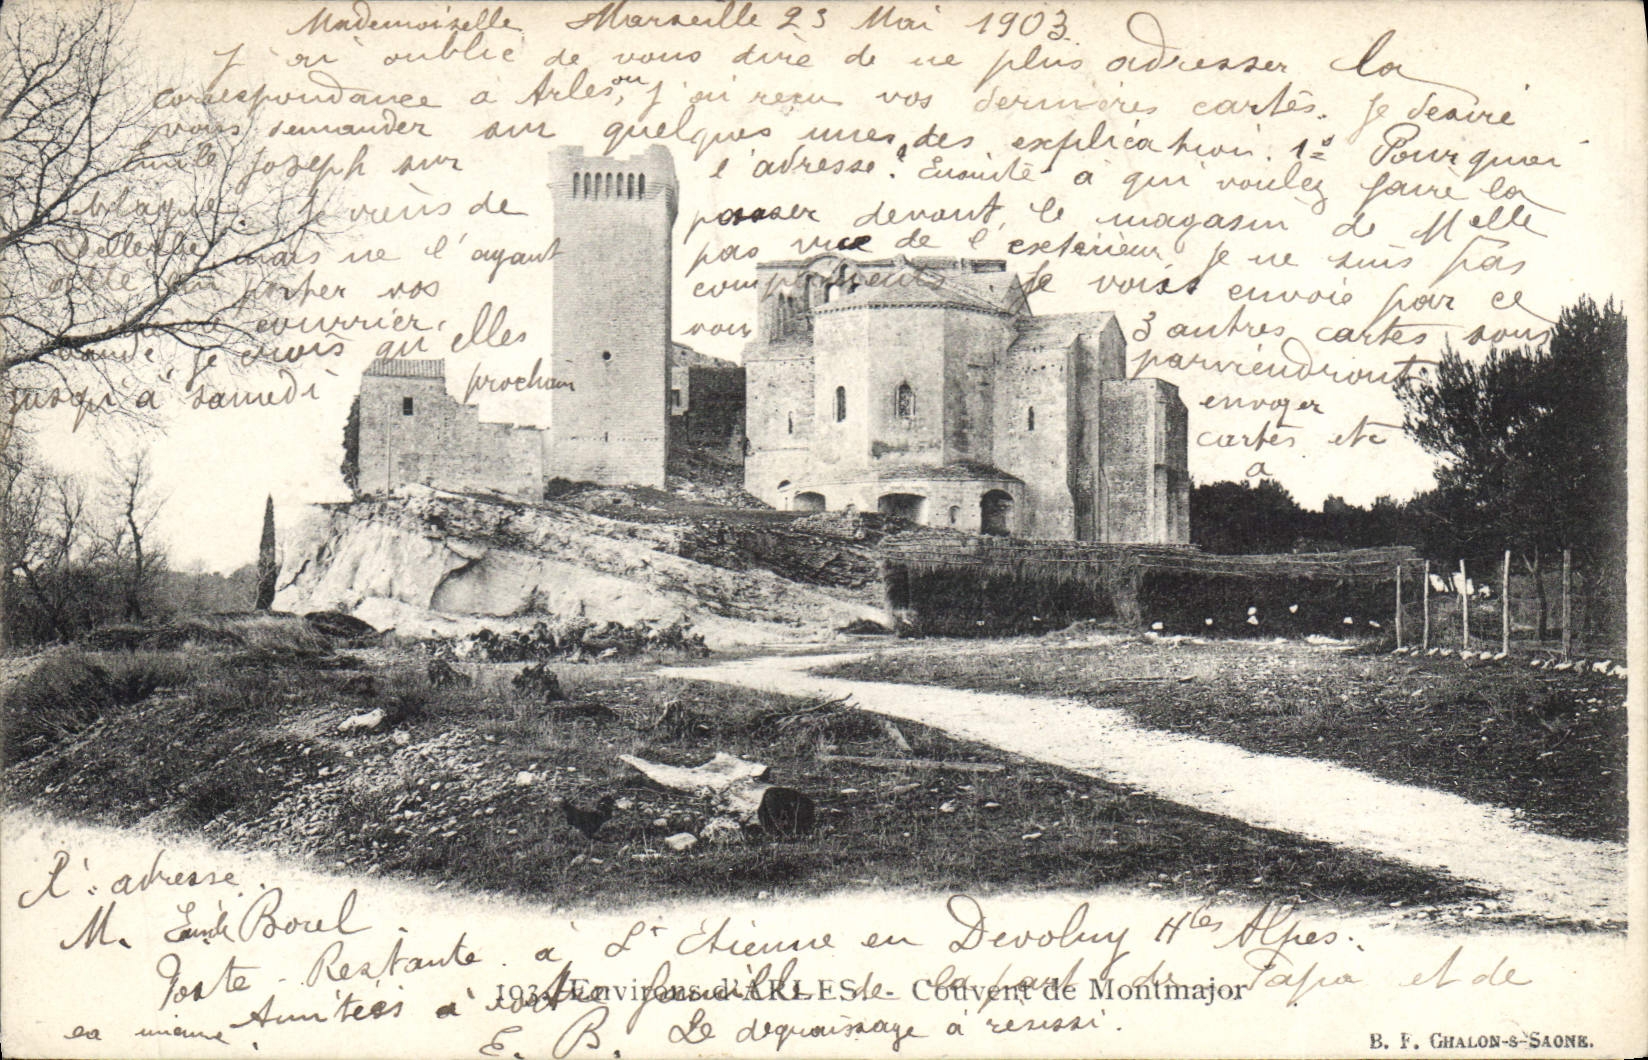 Mademoiselle Marseille 23 Mai 1903
J'ai oublié de vous dire de ne plus adresser la
correspondance à Arles, ou j'ai reçu vos dernières cartes. Je desire
vous demander sur quelques unes des explication. 1º Pourquoi
Emile Joseph sur l'adresse? Ensuite à qui voulez faire la
blague. Je viens de passer devant le magasin de Melle
mais ne l'ayant pas vue de l'exterieur je ne suis pas
porter vos compliments Je vous envoie par ce
courrier, 3 autres cartes vous
Je crois qu'elles vous parviendront
envoyer
jusqu'à samedi prochain cartes etc
a
R': adresse
M. Emile Borel
Poste-Restante à St Etienne en Devoluy Htes Alpes.
Amitiés à votre famille de la part de Papa et de
E. B. Le degraissage a reussi.
193. Environs d'ARLES. - Couvent de Montmajor
B. F. CHALON-S-SAONE.